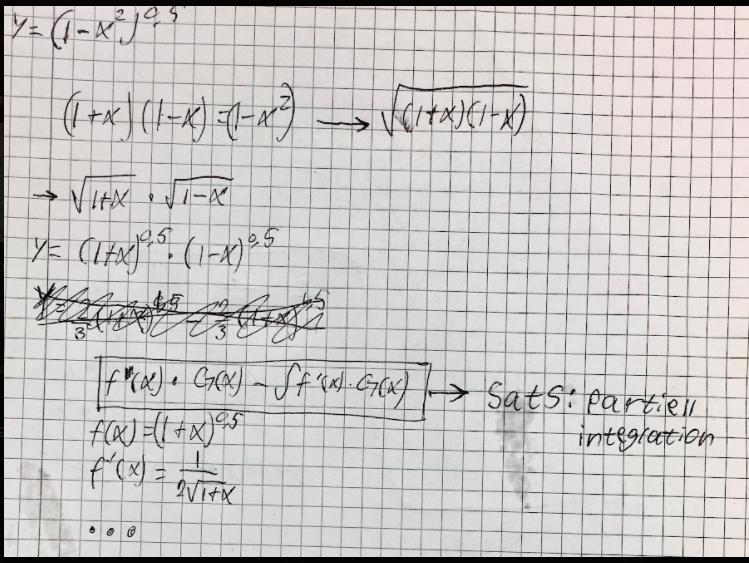 y = (1-x²)^0,5
(1+x)(1-x) = (1-x²) → √(1+x)(1-x)
→ √1+x · √1-x
y = (1+x)^0,5 · (1-x)^0,5
f(x) · G(x) - ∫f'(x) · G(x) → Sats: partiell
integration
f(x) = (1+x)^0,5
f'(x) = 1/2√1+x
...